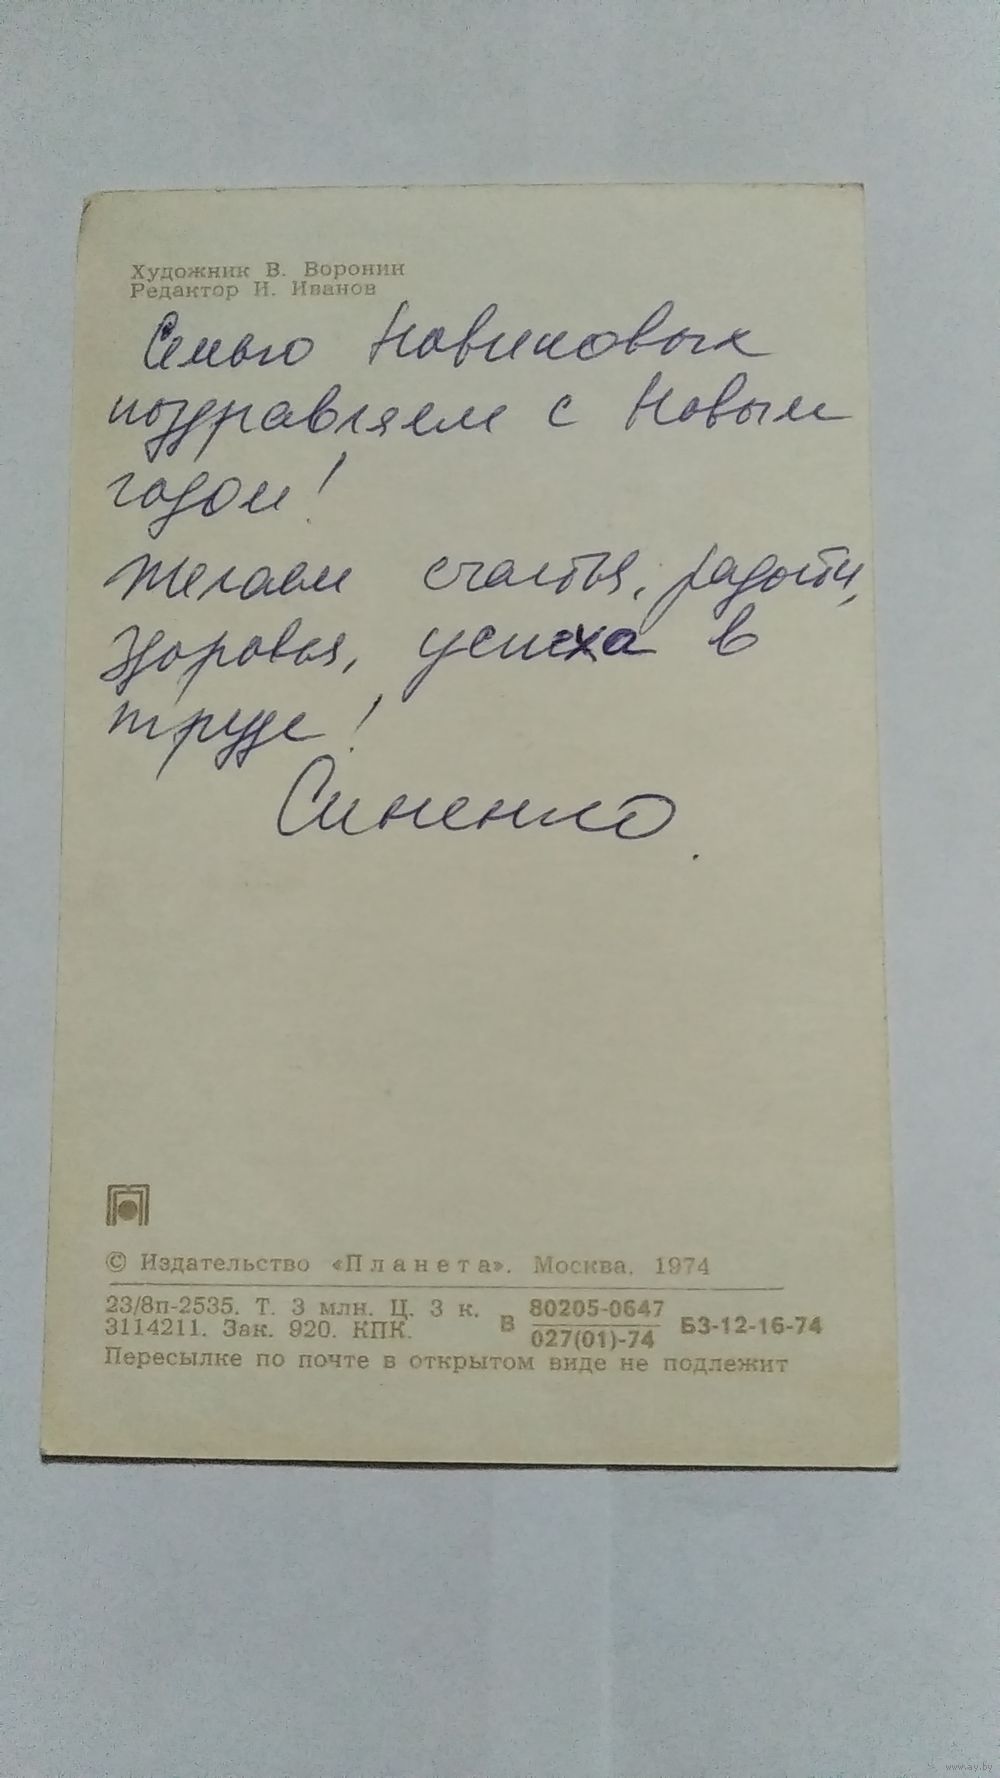 Художник В. Воронин
Редактор И. Иванов
Семью Новиковых
поздравляем с Новым
годом!
Желаем счастья, радости,
здоровья, успеха в
труде!
Синенко.
© Издательство «Планета». Москва. 1974
23/8п-2535. Т. 3 млн. Ц. 3 к.
3114211. Зак. 920. КПК.
В 80205-0647
027(01)-74 БЗ-12-16-74
Пересылке по почте в открытом виде не подлежит
www.ay.by